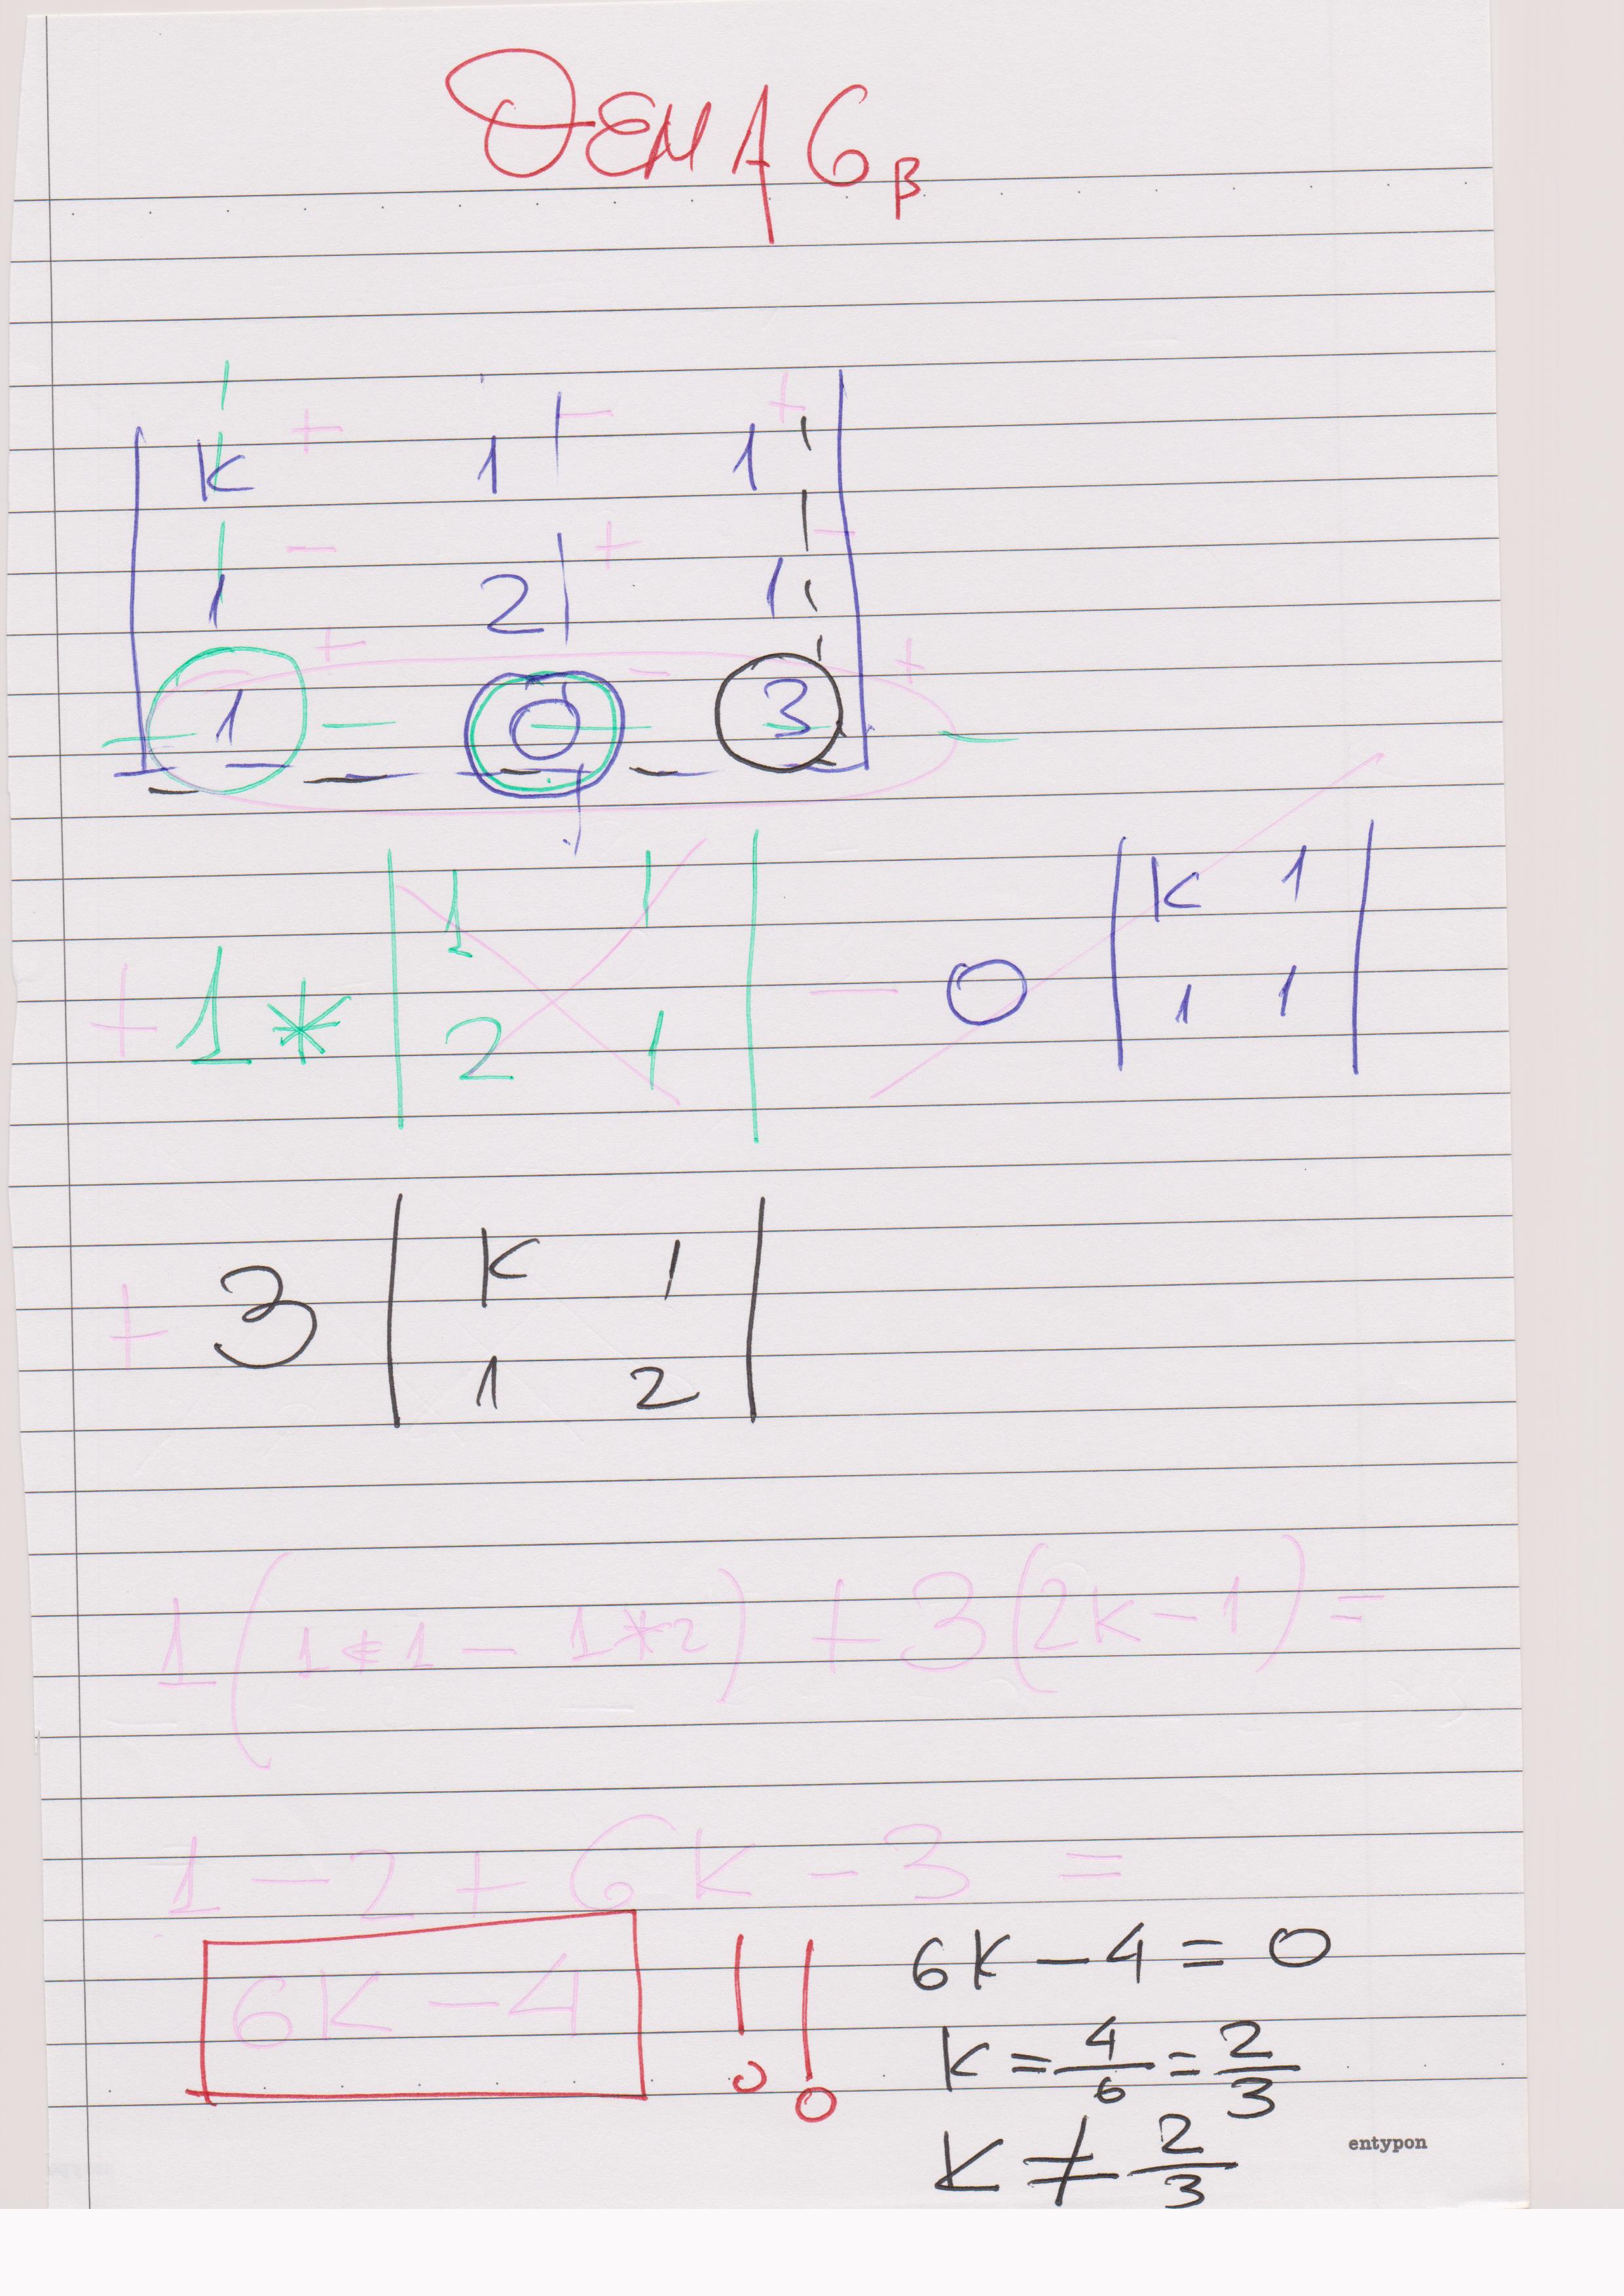 ΘΕΜΑ 6β
+ - +
k 1 1
- + -
1 2 1
+ - +
1 0 3
+ 1 * | 1 1 | - 0 | k 1 |
| 2 1 | | 1 1 |
+ 3 | k 1 |
| 1 2 |
1(1*1 - 1*2) + 3(2k-1) =
1 - 2 + 6k - 3 =
6k - 4 !!
6k - 4 = 0
k = 4/6 = 2/3
k ≠ 2/3
entypon